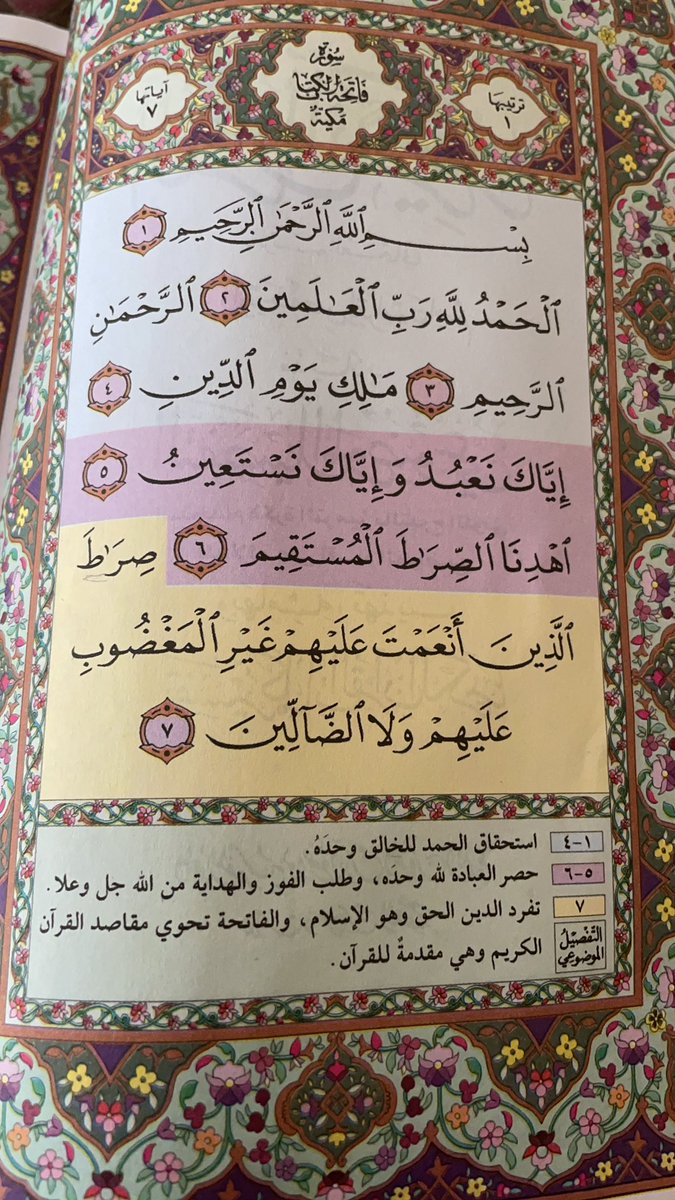 ترتيبها ١
سُورَةُ فَاتِحَةِ الكِتَابِ مَكِّيَّةٌ
آياتها ٧
بِسْمِ ٱللَّهِ ٱلرَّحْمَٰنِ ٱلرَّحِيمِ ١
ٱلْحَمْدُ لِلَّهِ رَبِّ ٱلْعَـٰلَمِينَ ٢ ٱلرَّحْمَـٰنِ
ٱلرَّحِيمِ ٣ مَـٰلِكِ يَوْمِ ٱلدِّينِ ٤
إِيَّاكَ نَعْبُدُ وَإِيَّاكَ نَسْتَعِينُ ٥
ٱهْدِنَا ٱلصِّرَٰطَ ٱلْمُسْتَقِيمَ ٦ صِرَٰطَ
ٱلَّذِينَ أَنْعَمْتَ عَلَيْهِمْ غَيْرِ ٱلْمَغْضُوبِ
عَلَيْهِمْ وَلَا ٱلضَّآلِّينَ ٧
١-٤ استحقاق الحمد للخالق وحدَهُ.
٥-٦ حصر العبادة لله وحده، وطلب الفوز والهداية من الله جل وعلا.
٧ تفرد الدين الحق وهو الإسلام، والفاتحة تحوي مقاصد القرآن
التَّفْصِيْلُ الموضوعي الكريم وهي مقدمةٌ للقرآن.